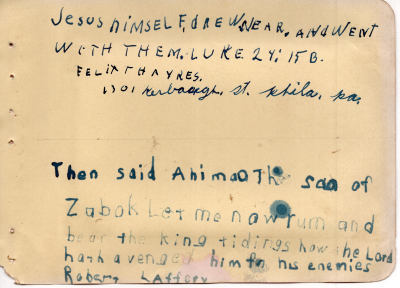 Jesus HIMSELF, DREW, NEAR. AND WENT
WITH THEM. LUKE 24: 15 B.
FELIX THAYRES.
1301 st. phila. pa.
Then said Ahimaath son of
Zabok Let me now rum and
bear the king tidings how the Lord
hath avenged him fo his enemies
Robert